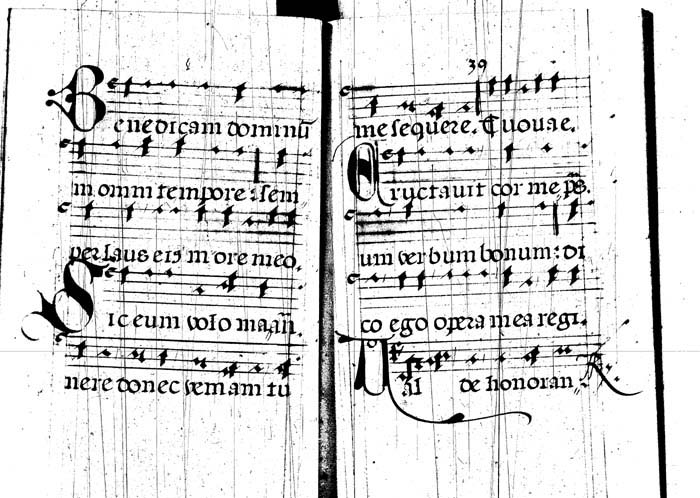 Benedicam dominū
in omni tempore: sem
per laus eis in ore meo.
Sic eum volo ma
nere donec veniam tu
39
me sequere. Evovae.
Eructavit cor me ps.
um verbum bonum: di
co ego opera mea regi.
de honoran